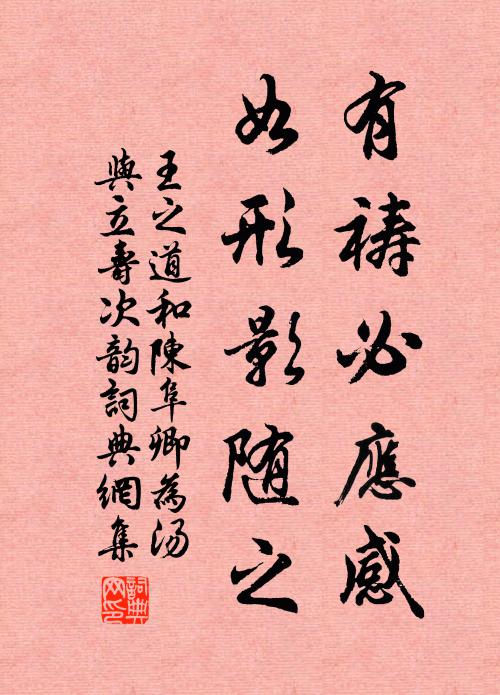 有祷必應感
如形影随之
王之道和陳阜卿為湯
與立壽次韵詞典網集
詞典
网印